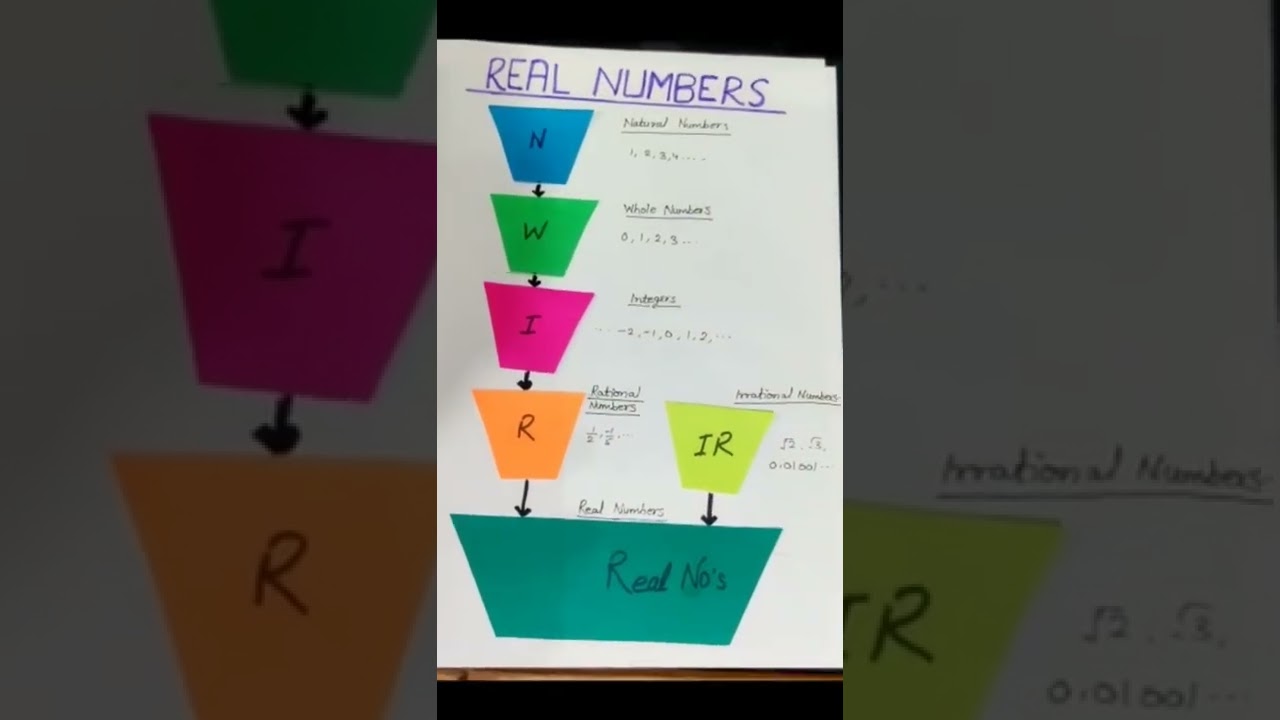 REAL NUMBERS
N
Natural Numbers
1, 2, 3, 4 ....
W
Whole Numbers
0, 1, 2, 3 ...
I
Integers
... -2, -1, 0, 1, 2, ...
R
Rational
Numbers
IR
Irrational Numbers
√2, √3,
0.01001...
Real Numbers
Real No's
I
R
Irrational Numbers
√2, √3,
0.01001...
IR